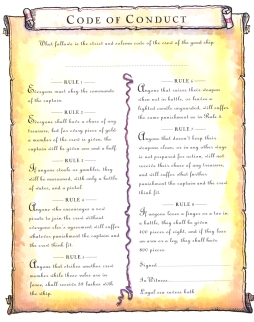 CODE OF CONDUCT
What follows is the strict and solemn code of the crew of the good ship
RULE 1
Everyone must obey the commands
of the captain.
RULE 2
Everyone shall have a share of any
treasure, but for every piece of gold
a member of the crew is given, the
captain will be given one and a half.
RULE 3
If anyone steals or gambles, they
will be marooned, with only a bottle
of water, and a pistol.
RULE 4
Anyone who encourages a new
pirate to join the crew without
everyone else's agreement will suffer
whatever punishment the captain and
the crew think fit.
RULE 5
Anyone that strikes another crew
member while these rules are in
force, shall receive 39 lashes
the ship.
RULE 6
Anyone that raises their weapon
when not in battle, or leaves a
lighted candle unguarded, will suffer
the same punishment as in Rule 5.
RULE 7
Anyone that doesn't keep their
weapons clean, or in any other wings
is not prepared for action, will not
receive their share of any treasure,
and will suffer what further
punishment the captain and the crew
think fit.
RULE 8
If anyone loses a finger or a toe in
a battle, they shall be given
100 pieces of eight, and if they lose
an arm or a leg, they shall have
800 pieces.
Signed
In Witness
Loyal crew